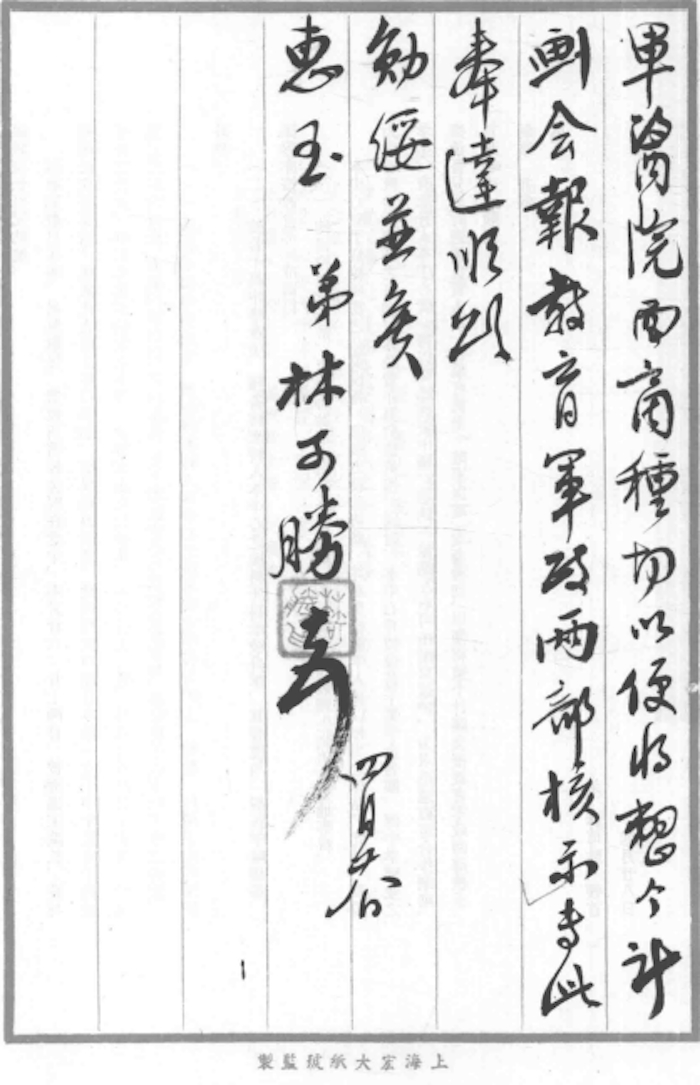 軍醫院面商種切以便將整个計
画会報教育軍政兩部核示专此
奉達順頌
勛綏並矣
惠玉 弟林可勝
四月廿八日
上海宏大紙號監製